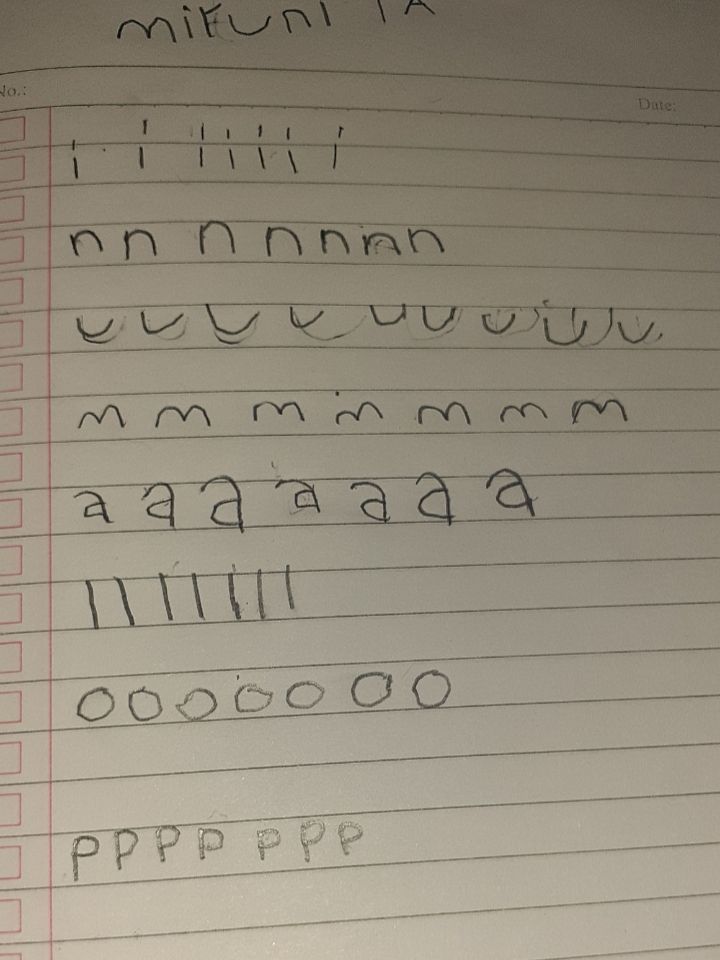 mikuni 1A
No.: Date:
i i i i i i i
n n n n n n n
u u u u u u u u u
m m m m m m m
a a a a a a a
l l l l l l l
o o o o o o o
p p p p p p p